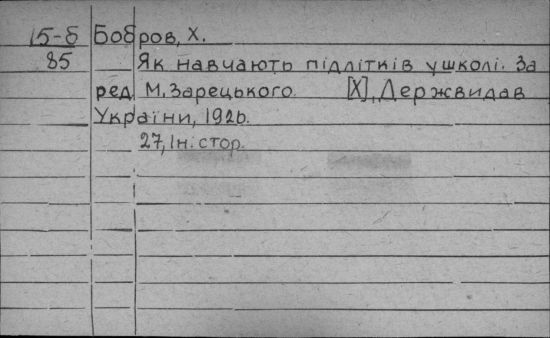 15-б Бобров, Х.
85 Як навчають підлітків у школі. За
ред. М. Зарецького. [Х], Держвидав
України, 1926.
27, Ін. стор.